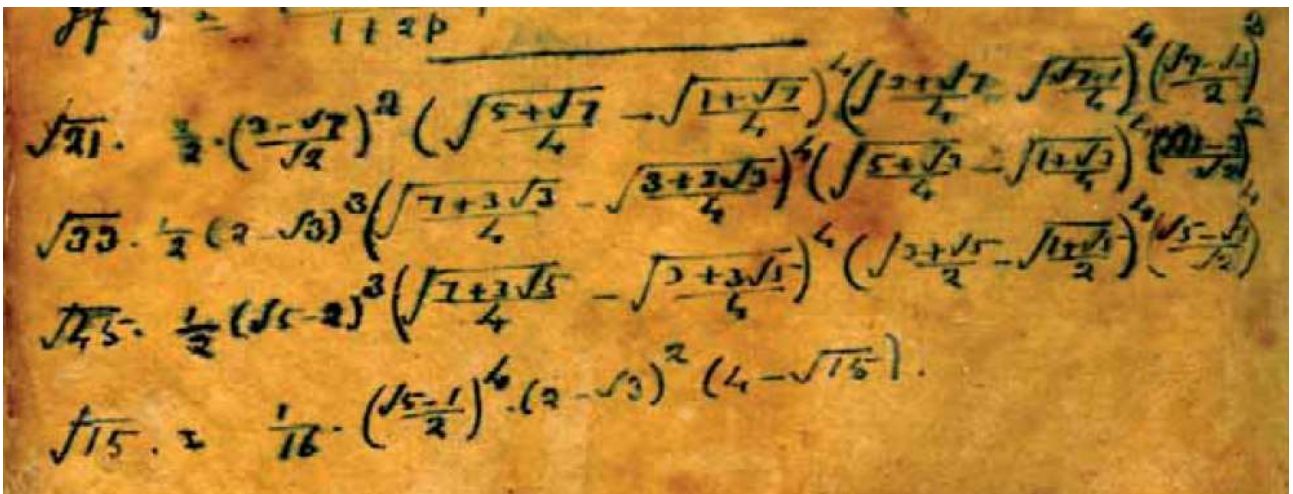 If y = 1 + 2p
√21. ½·((3-√7)/√2)^2 (√((5+√7)/4) - √((1+√7)/4))^4 (√((3+√7)/4) - √((√7-1)/4))^4 ((√7-√3)/2)^2
√33. ½ (2-√3)^3 (√((7+3√3)/4) - √((3+3√3)/4))^4 (√((5+√3)/4) - √((1+√3)/4))^4
√45. ½ (√5-2)^3 (√((7+3√5)/4) - √((3+3√5)/4))^4 (√((3+√5)/2) - √((1+√5)/2))^4 ((√5-√3)/√2)^4
√15. = 1/16·((√5-1)/2)^4·(2-√3)^2 (4-√15).